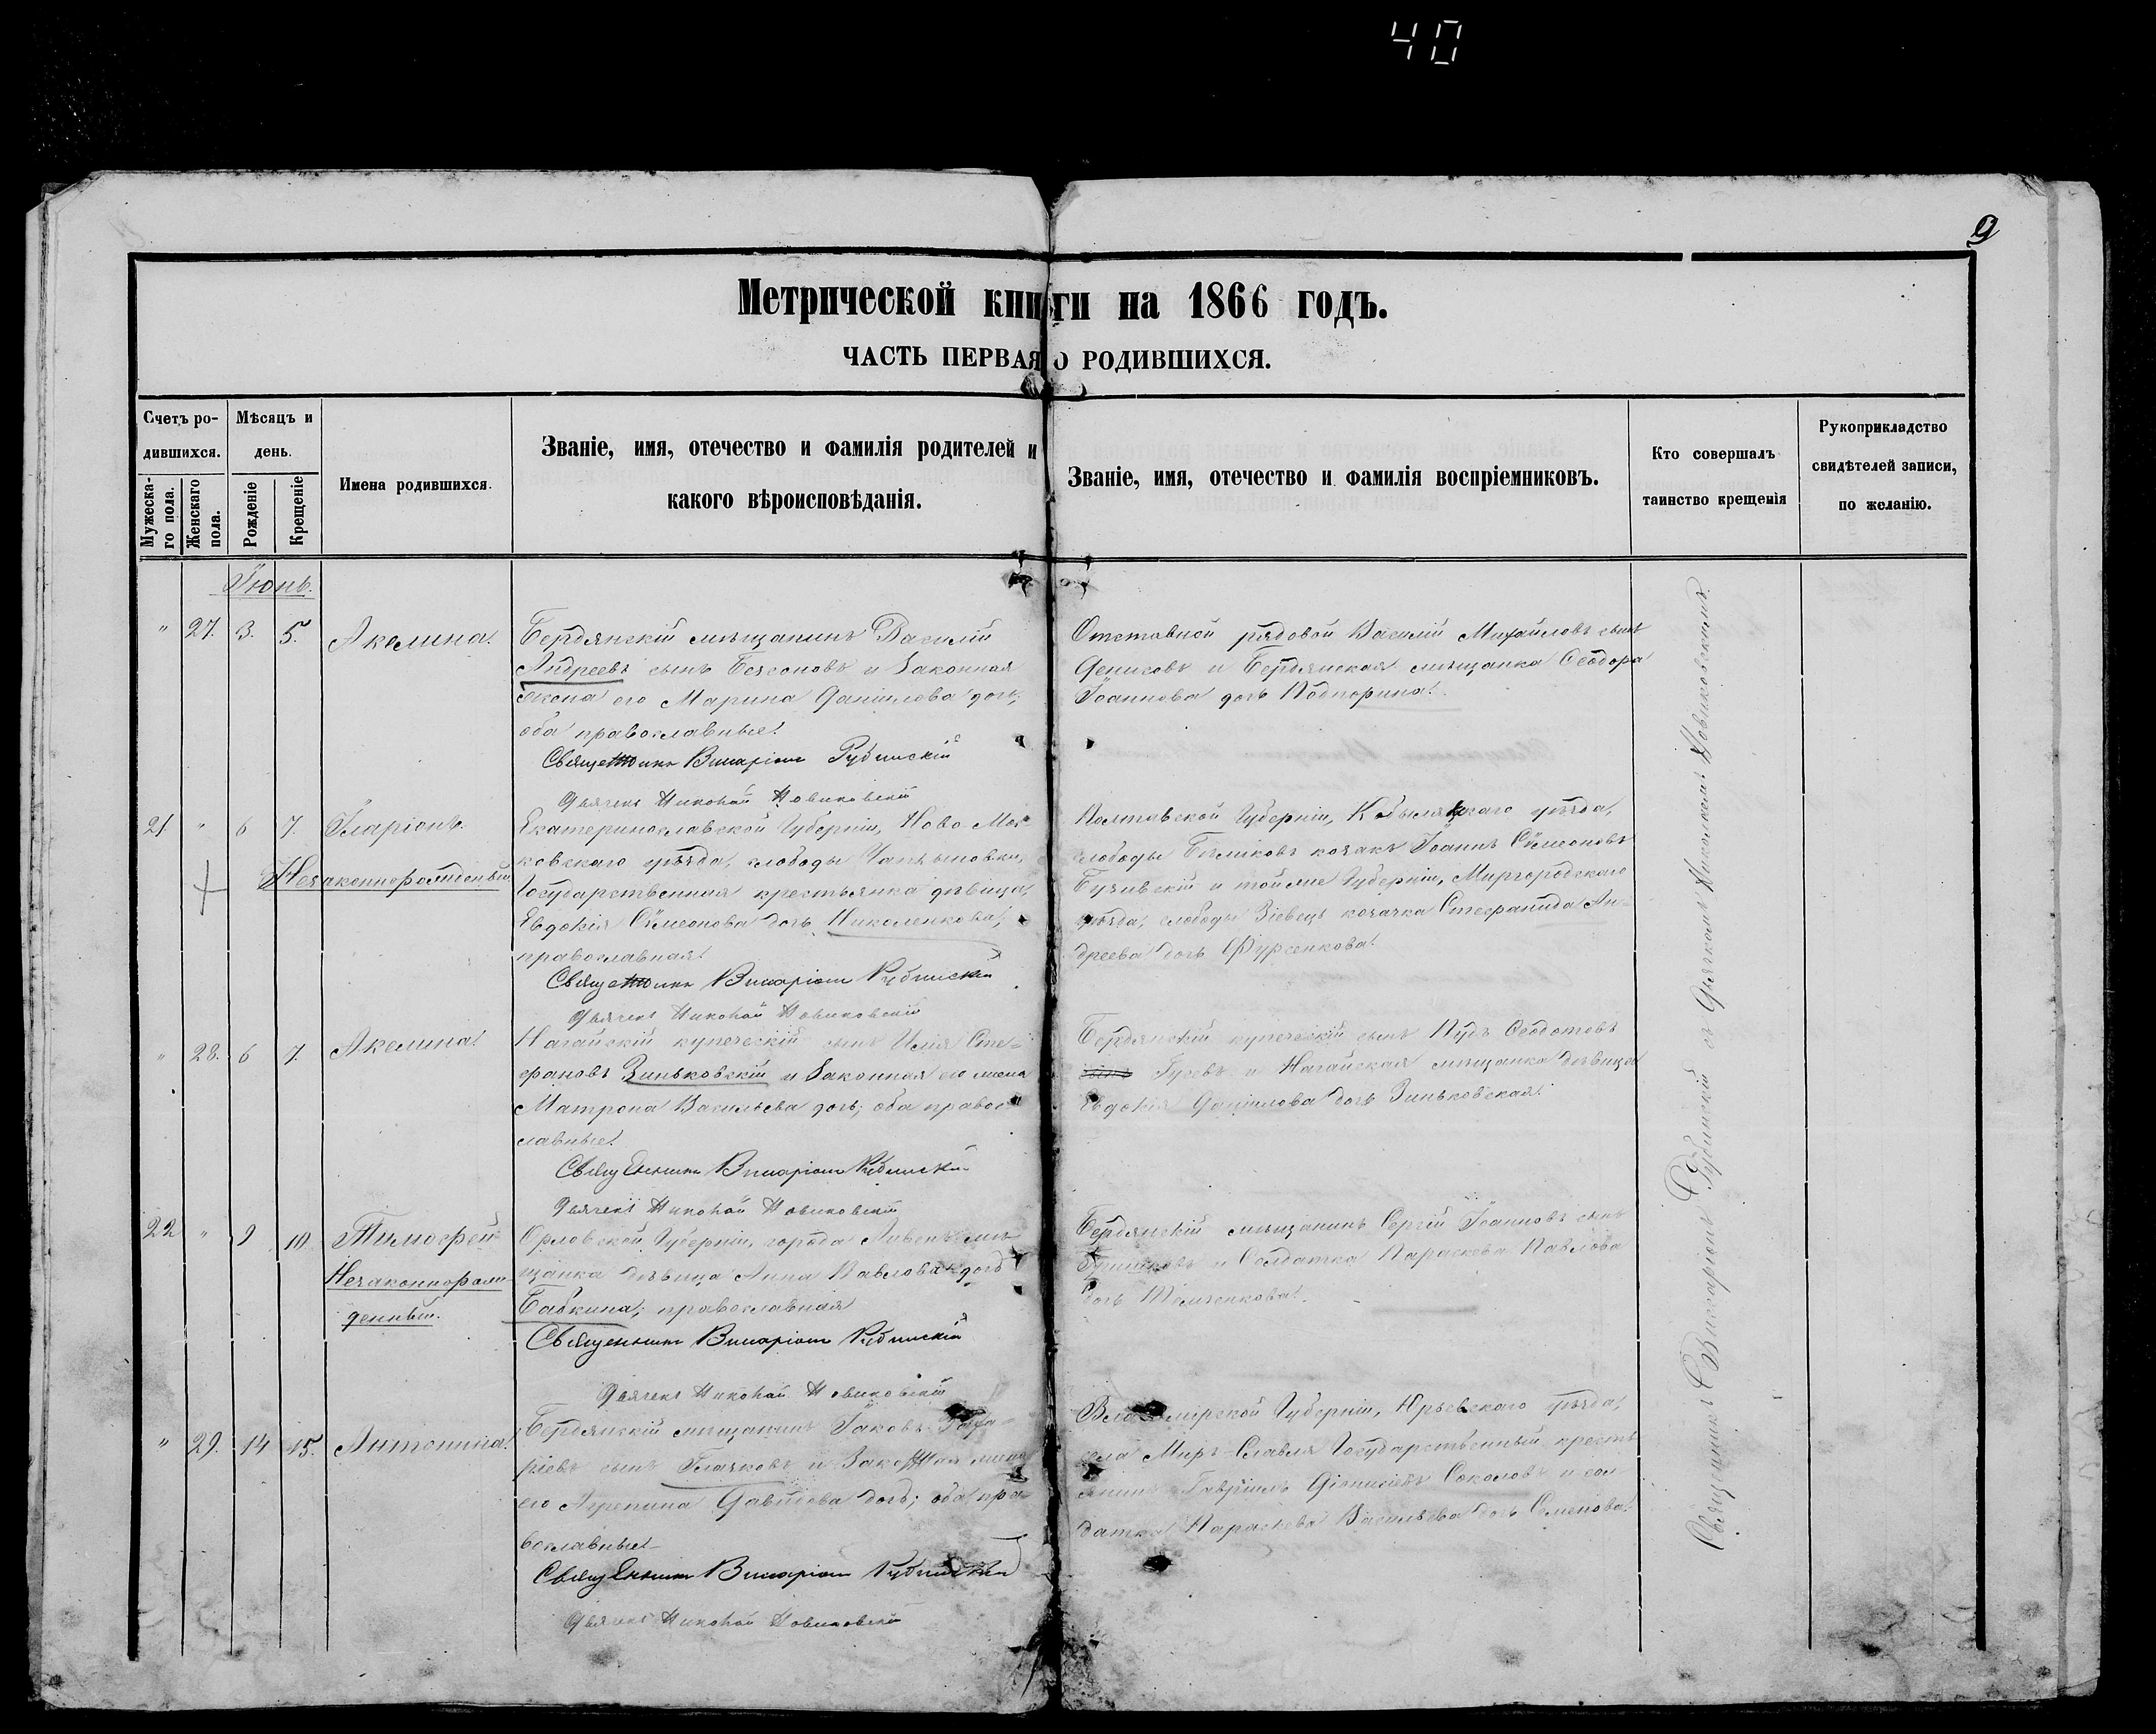 40
9
Метрической книги на 1866 годъ.
ЧАСТЬ ПЕРВАЯ О РОДИВШИХСЯ.
Счетъ ро-
дившихся.
Мужеска-
го пола.
Женскаго
пола.
Мѣсяцъ и
день.
Рожденіе
Крещеніе
Имена родившихся.
Званіе, имя, отечество и фамилія родителей и
какого вѣроисповѣданія.
Званіе, имя, отечество и фамилія воспріемниковъ.
Кто совершалъ
таинство крещенія
Рукоприкладство
свидѣтелей записи,
по желанію.
Іюнь.
" 27. 3. 5. Акелина.
Бердянскій мѣщанинъ Василій
Андреевъ сынъ и законная
жена его Марина Даніилова дочь,
оба православные.
Священникъ Викаріонъ Рубинскій
Дьячекъ Николай Новиковскій
Отставной рядовой Василій Михайловъ сынъ
Денисовъ и Бердянская мѣщанка Ѳеодора
Іоаннова дочь Подпорина.
21 " 6 7. Иларіонъ.
Незаконнорожденный
Екатеринославской Губерніи, Ново Мос-
ковскаго уѣзда, слободы
Государственная крестьянка дѣвица,
Евдокія Сѵмеонова дочь Николенкова,
православная.
Священникъ Викаріонъ Рубинскій
Дьячекъ Николай Новиковскій
Полтавской Губерніи, Кобыляцкаго уѣзда,
слободы Бѣликовъ козакъ Іоаннъ Сѵмеоновъ
и тойже Губерніи, Миргородскаго
уѣзда, слободы козачка Стефанида Ан-
дреева дочь Фурсенкова.
" 28. 6 7. Акелина.
Нагайскій купеческій сынъ Илія Сте-
фановъ Зиньковскій и законная его жена
Матрона Васильева дочь; оба право-
славные.
Священникъ Викаріонъ Рубинскій
Дьячекъ Николай Новиковскій
Бердянскій купеческій сынъ Пудъ Ѳеодотовъ
Гусевъ и Нагайская мѣщанка дѣвица
Евдокія Даніилова дочь Зиньковская.
22 " 9 10. Тимофей
Незаконнорож-
денный.
Орловской Губерніи, города Ливенъ мѣ-
щанка дѣвица Анна Павлова дочь
Бабкина; православная
Священникъ Викаріонъ Рубинскій
Дьячекъ Николай Новиковскій
Бердянскій мѣщанинъ Сергій Іоанновъ сынъ
и Солдатка Параскева Павлова
дочь
" 29. 14 15. Антонина.
Бердянскій мѣщанинъ Іаковъ
сынъ и законная жена
его Агрепина Давидова дочь; оба пра-
вославные
Священникъ Викаріонъ Рубинскій
Дьячекъ Николай Новиковскій
Владимірской Губерніи, Юрьевскаго уѣзда,
села Миръ-Славля Государственный кресть-
янинъ Гавріилъ Діонисіевъ Соколовъ и сол-
датка Параскева Васильева дочь Семенова.
Священникъ Викаріонъ Рубинскій съ Дьячкомъ Николаемъ Новиковскимъ.